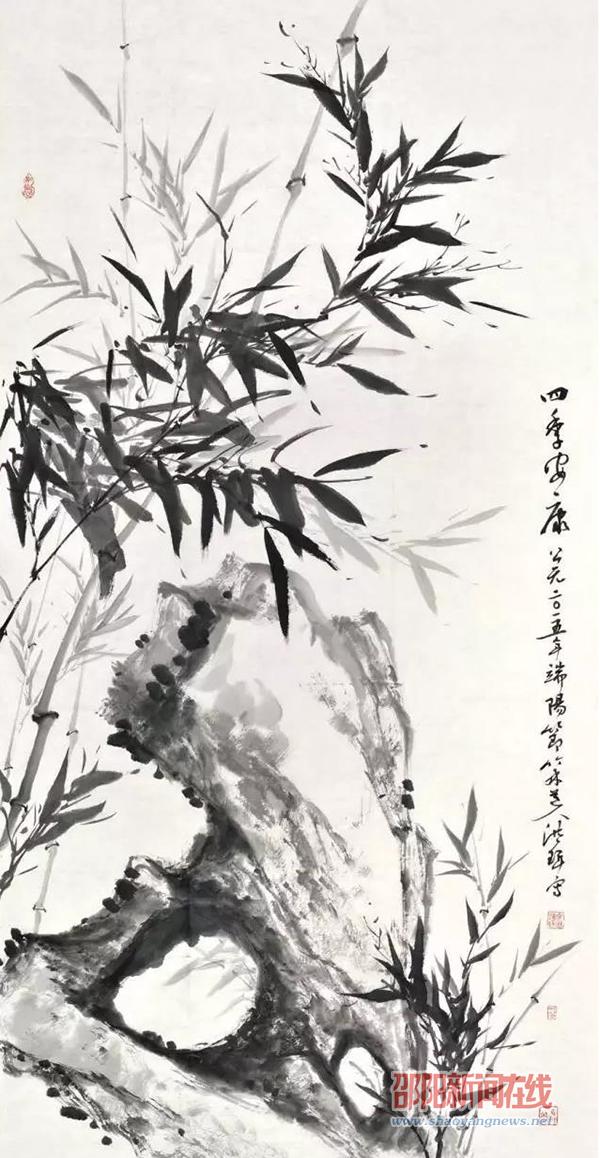 四季安康
公元二〇一五年端陽節竹林道人洪
写
邵阳新闻在线
www.shaoyangnews.net